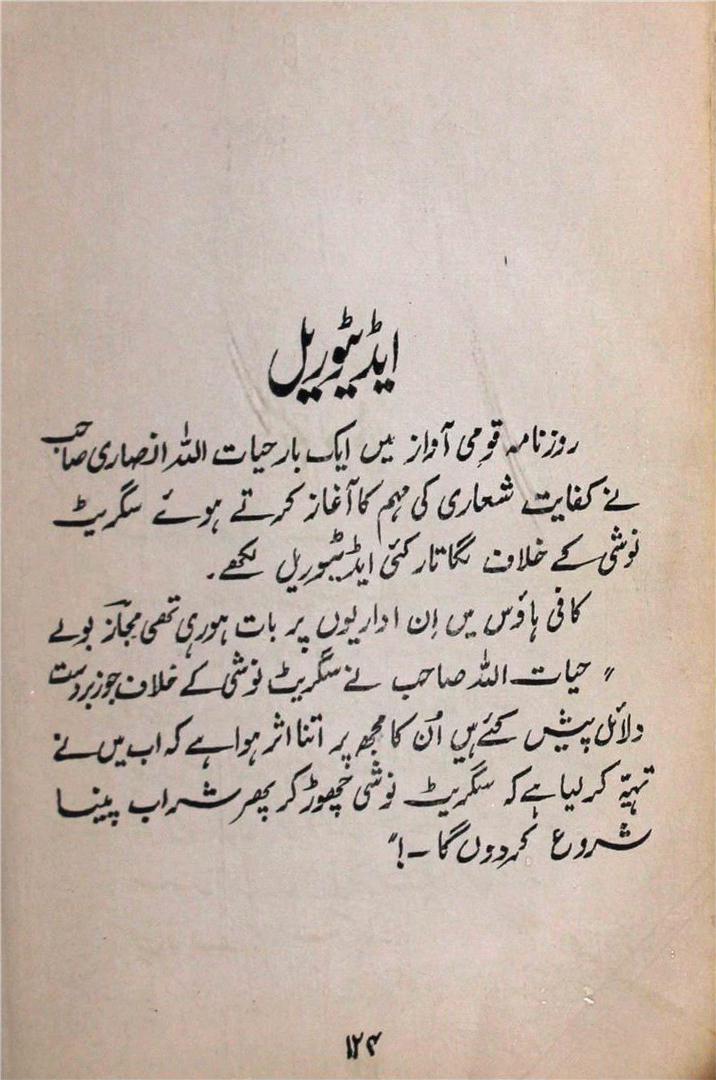 ایڈیٹوریل
روزنامہ قومی آواز میں ایک بار حیات اللہ انصاری صاحب
نے کفایت شعاری کی مہم کا آغاز کرتے ہوئے سگریٹ
نوشی کے خلاف لگاتار کئی ایڈیٹوریل لکھے۔
کافی ہاؤس میں اِن اداریوں پر بات ہورہی تھی مجازؔ بولے
"حیات اللہ صاحب نے سگریٹ نوشی کے خلاف جو زبردست
دلائل پیش کئے ہیں اُن کا مجھ پر اتنا اثر ہوا ہے کہ اب میں نے
تہیّہ کرلیا ہے کہ سگریٹ نوشی چھوڑ کر پھر شراب پینا
شروع کردوں گا ۔!"
۱۲۴